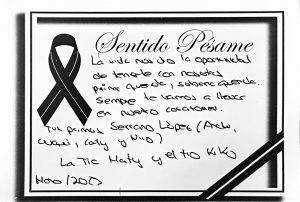 Sentido Pésame
La vida nos dio la oportunidad
de tenerte con nosotros
primo querido, sobrino querido.
Siempre te vamos a llevar
en nuestro corazones.
Tus primos Serrano López (
, Caty y
La Tía Maty y el tío Kiko